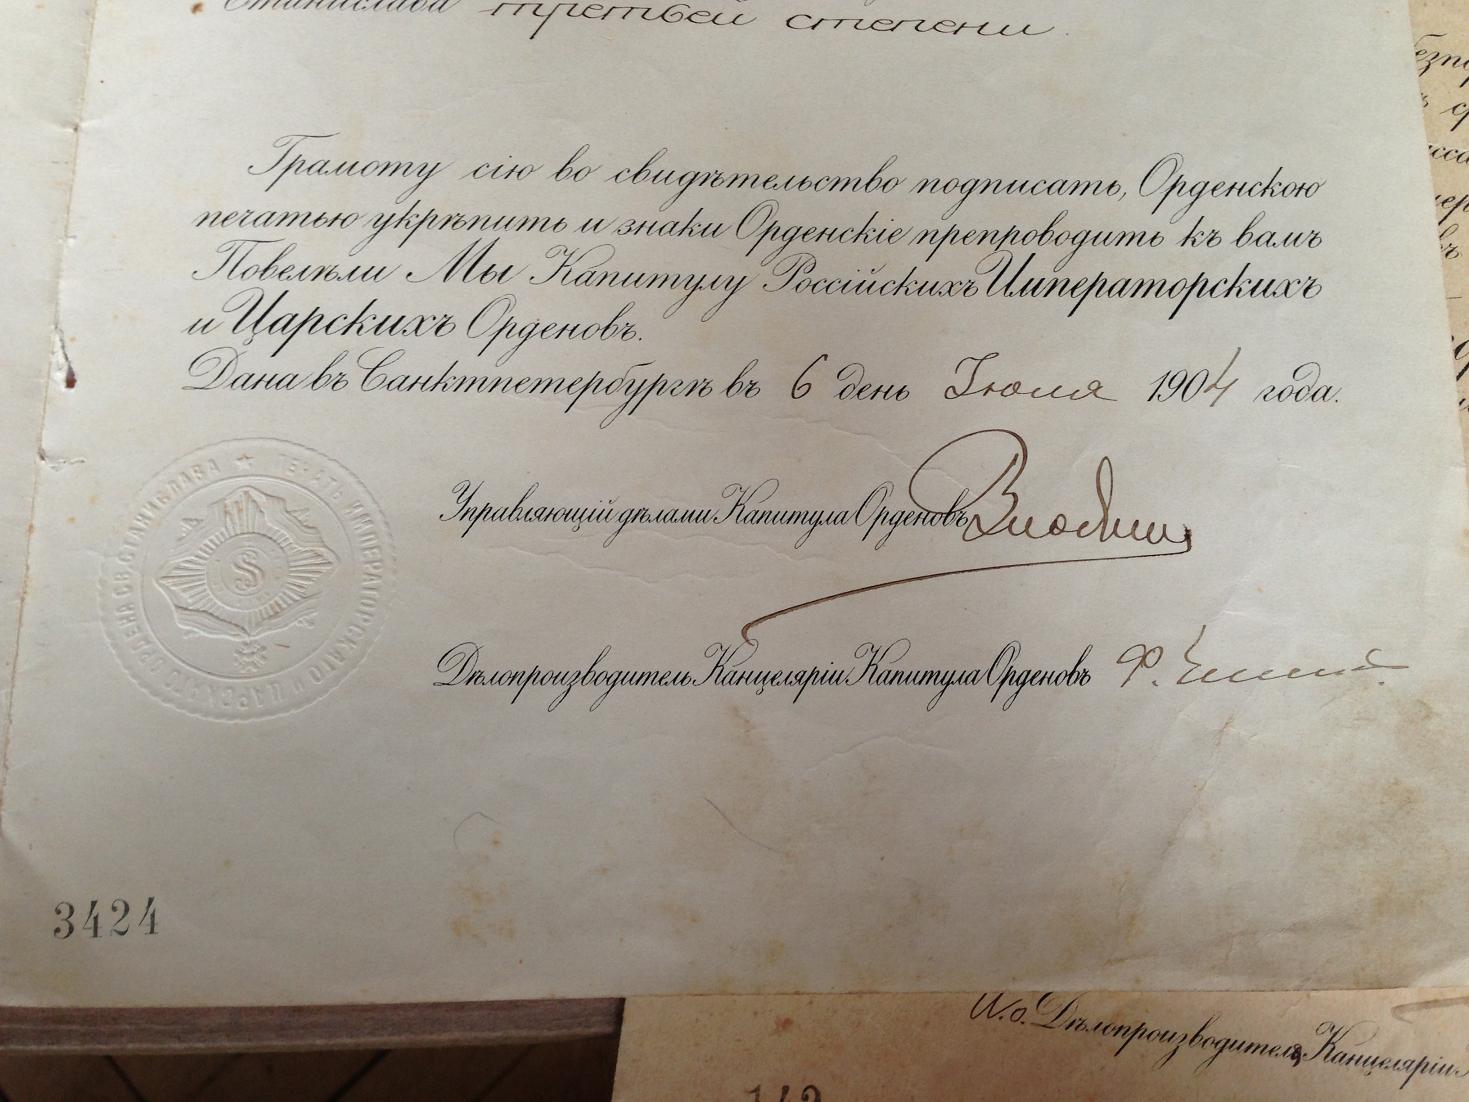 Станислава третьей степени.
Грамоту сію во свидѣтельство подписать, Орденскою
печатью укрѣпить и знаки Орденскіе препроводить къ вамъ
Повелѣли Мы Капитулу Россійскихъ Императорскихъ
и Царскихъ Орденовъ.
Дана въ Санктпетербургѣ въ 6 день Іюля 1904 года.
ПЕЧАТЬ ИМПЕРАТОРСКАГО И ЦАРСКАГО ОРДЕНА СВ СТАНИСЛАВА
SS
Управляющій дѣлами Капитула Орденовъ
Дѣлопроизводитель Канцеляріи Капитула Орденовъ Ф.
3424
И.о. Дѣлопроизводителя Канцеляріи
142